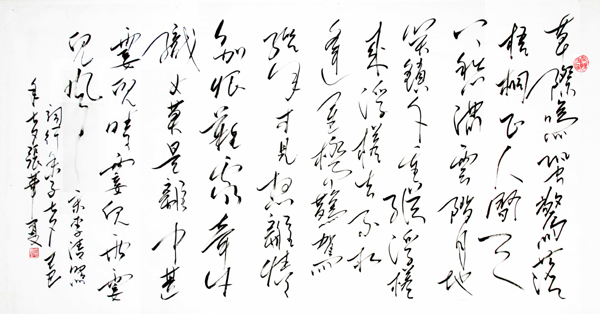 草際鳴蛩驚落
梧桐正人間天
上愁濃雲階月地
關鎖千重縱浮槎
來浮槎去不相
逢星橋鵲駕
經年才見想離情
別恨難窮牽牛
織女莫是離中甚
霎兒晴霎兒雨霎
兒風
宋李清照
詞行香子七夕
年七夕張華夏